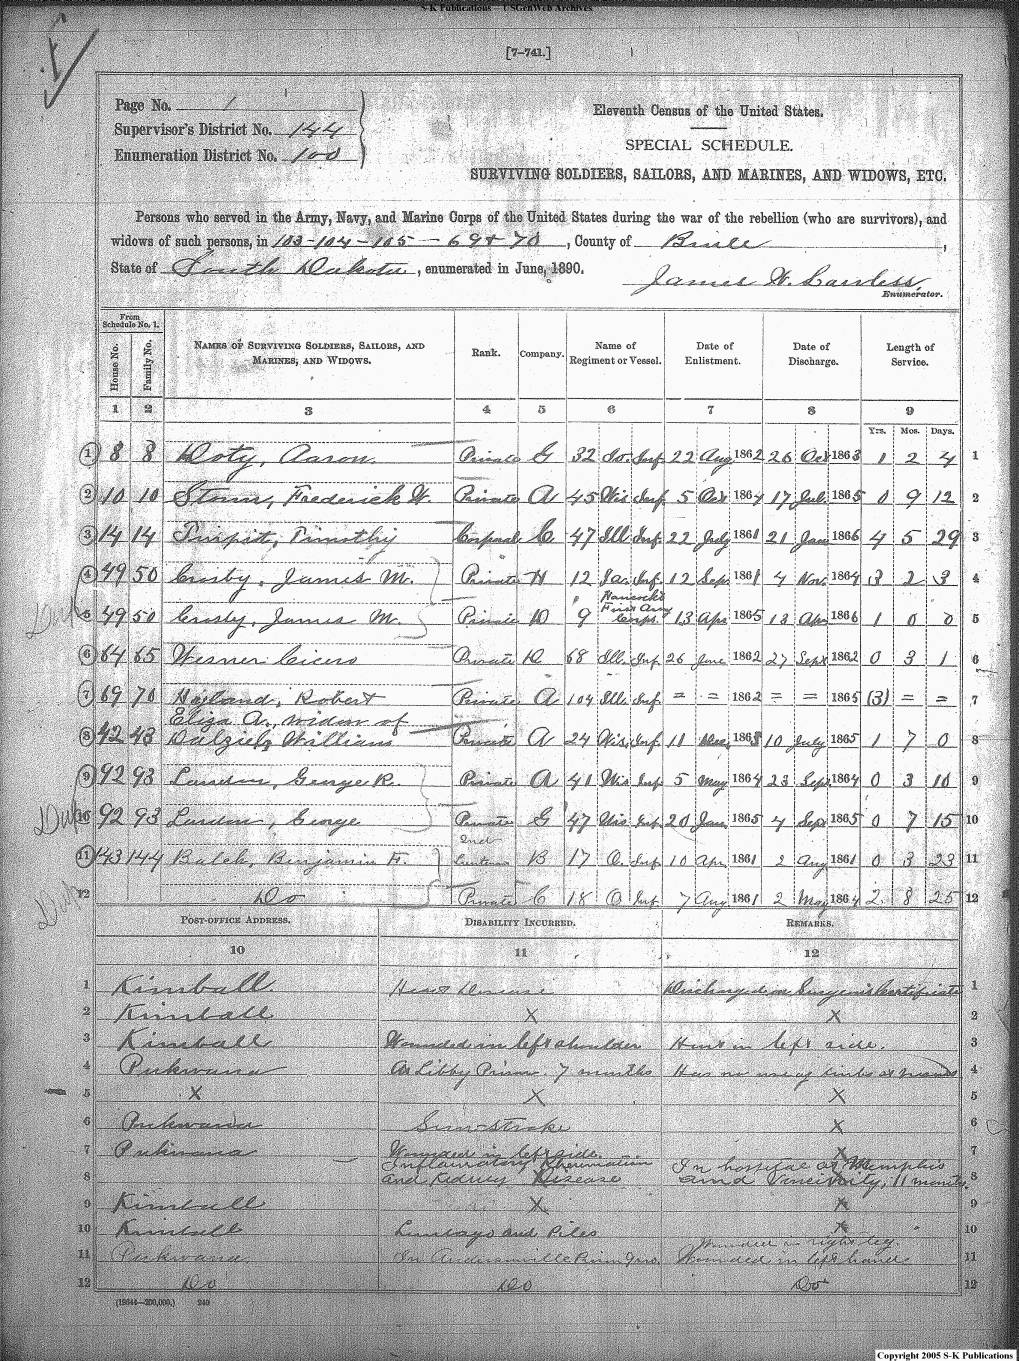 S-K Publications - USGenWeb Archives
[7-741.]
Page No. 1
Supervisor's District No. 144
Enumeration District No. 100
Eleventh Census of the United States.
SPECIAL SCHEDULE.
SURVIVING SOLDIERS, SAILORS, AND MARINES, AND WIDOWS, ETC.
Persons who served in the Army, Navy, and Marine Corps of the United States during the war of the rebellion (who are survivors), and
widows of such persons, in 103-104-105-69+70, County of Brule,
State of South Dakota, enumerated in June, 1890.
James W. Lawless,
Enumerator.
From Schedule No. 1.
House No. Family No. NAMES OF SURVIVING SOLDIERS, SAILORS, AND MARINES, AND WIDOWS. Rank. Company. Name of Regiment or Vessel. Date of Enlistment. Date of Discharge. Length of Service.
1 2 3 4 5 6 7 8 9
Yrs. Mos. Days.
1 8 8 Doty, Aaron. Private G 32 Io. Inf. 22 Aug 1862 26 Oct 1863 1 2 4 1
2 10 10 Storm, Frederick W. Private A 45 Wis Inf. 5 Oct 1864 17 July 1865 0 9 12 2
3 14 14 Timothy Corporal C 47 Ill. Inf. 22 July 1861 21 Jan 1866 4 5 29 3
4 49 50 Crosby, James M. Private H 12 Inf. 12 Sep 1861 4 Nov. 1864 3 2 3 4
Dup 5 49 50 Crosby, James M. Private D 9 Hancock's First Army Corps. 13 Apr 1865 13 Apr 1866 1 0 0 5
6 64 65 Wesner Cicero Private D 68 Ill. Inf. 26 June 1862 27 Sept 1862 0 3 1 6
7 69 70 Robert Private A 104 Ill. Inf. = = 1862 = = 1865 (3) = = 7
Eliza A., widow of
8 42 43 Dalziel, William Private A 24 Wis. Inf. 11 Dec. 1863 10 July 1865 1 7 0 8
9 92 93 Landon, George R. Private A 41 Wis Inf 5 May 1864 23 Sep. 1864 0 3 10 9
Dup 10 92 93 Landon, George Private G 47 Wis. Inf. 20 Jan. 1865 4 Sep 1865 0 7 15 10
2nd
11 143 144 Balch, Benjamin F. B 17 O. Inf 10 Apr. 1861 2 Aug 1861 0 3 23 11
Dup 12 Do Private C 18 O. Inf 7 Aug 1861 2 May 1864 2. 8 25 12
POST-OFFICE ADDRESS. DISABILITY INCURRED. REMARKS.
10 11 12
1 Kimball Heart Disease Discharged on Surgeon's Certificate 1
2 Kimball X X 2
3 Kimball Wounded in left shoulder Hurt in left side. 3
4 Pukwana At Libby Prison. 7 months Has no use of limbs at 4
5 X X X 5
6 Pukwana Sun-Stroke X 6
7 Pukwana Wounded in left side. X 7
8 Inflamatory Rheumatism and Kidney Disease In hospital at Memphis and Vencivity, 11 months. 8
9 Kimball X X 9
10 Kimball Lumbago and Piles X 10
Wounded in right leg.
11 Pukwana In Andersonville Prison Wounded in left hand 11
12 Do Do Do 12
(19644-200,000.) 240
Copyright 2005 S-K Publications